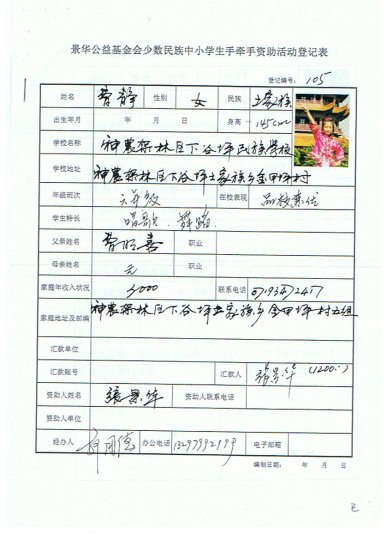 景华公益基金会少数民族中小学生手牵手资助活动登记表
登记编号: 105
姓名 曹静 性别 女 民族 土家族
出生年月 年 月 日 身高 145cm
学校名称 神农架林区下谷坪民族学校
学校地址 神农架林区下谷坪土家族乡金甲坪村
年级班次 六年级 在校表现 品校兼优
学生特长 唱歌 舞蹈
父亲姓名 曹 喜 职业
母亲姓名 无 职业
家庭年收入状况 3000 联系电话
家庭地址及邮编 神农架林区下谷坪土家族乡金甲坪村五组
汇款单位
汇款账号 汇款人 张景华 (1200.)
资助人姓名 张景华 资助人联系电话
资助人单位
经办人 办公电话 13297992999 电子邮箱
编制日期: 年 月 日